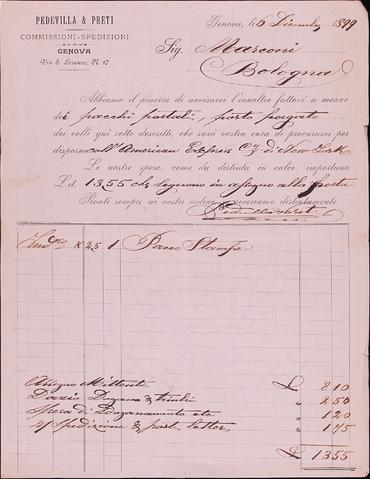 PEDEVILLA & PRETI
COMMISSIONI-SPEDIZIONI
GENOVA
Via S. Lorenzo, N. 12
Genova, li 6 Dicembre 1899
Sig. Marconi
Bologna
Abbiamo il piacere di avvisarvi l'inoltro fattovi a mezzo
dei pacchi postali, porto pagato
dei colli qui sotto descritti, che sarà vostra cura di procurarvi per
disporne coll'American Express Cy di New York
Le nostre spese, come da distinta in calce, importano
Lit. 13.55 che seguono in assegno alla posta
Pronti sempre ai vostri ordini, vi riveriamo distintamente
Pedevilla & Preti
K 25 1 Pacco Stampe
Assegno Mittente £ 8 10
Dazio Dogana & " 2 50
Spesa di " 1 20
n/ Spedizione & post. lettere " 1 75
£ 13 55